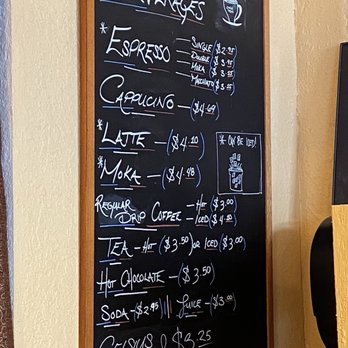 BEVERAGES
* ESPRESSO
SINGLE ($2.95
DOUBLE ($3.95
MOKA ($3.55
MACCHIATO ($3.55
CAPPUCINO — ($4.69
* LATTE — ($4.20)
* CAN BE ICED!
* MOKA — ($4.48)
REGULAR DRIP COFFEE — HOT ($3.00
ICED ($4.20)
TEA - HOT ($3.50) OR ICED ($3.00)
HOT CHOCOLATE — ($3.50)
SODA - ($2.95) JUICE - ($3.00)
CELSIUS $3.25